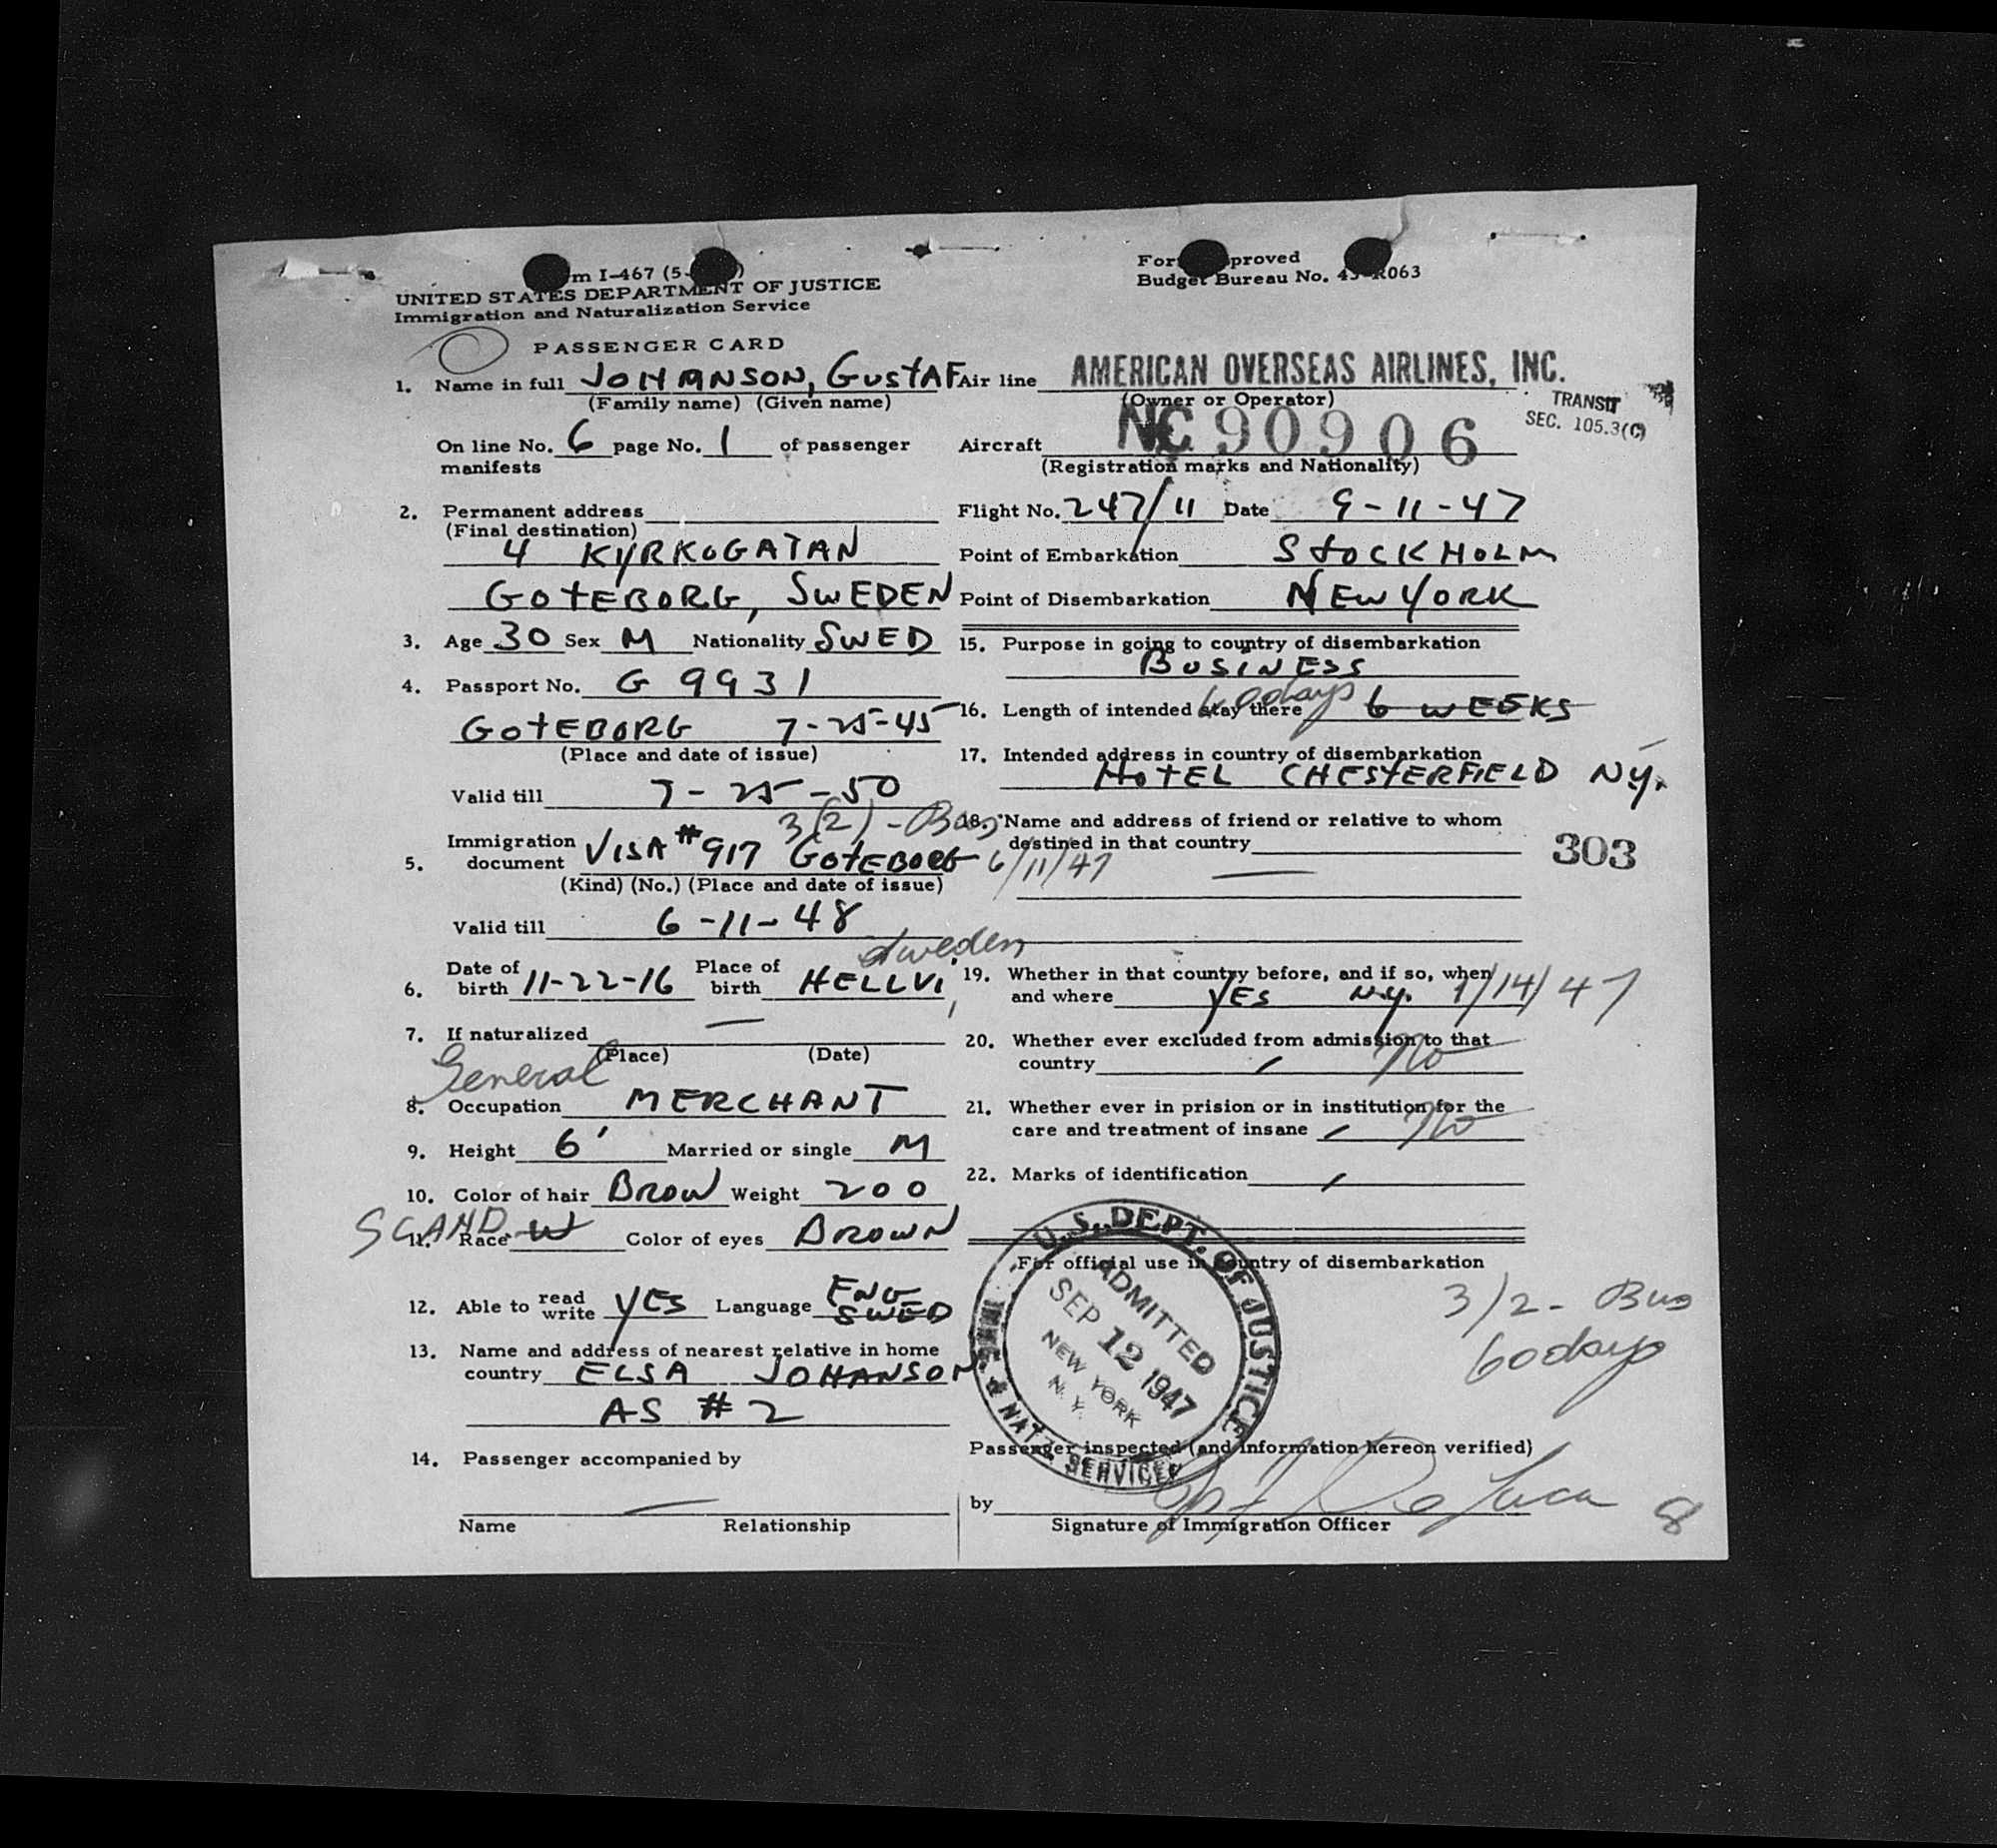 m I-467 (5-
UNITED STATES DEPARTMENT OF JUSTICE
Immigration and Naturalization Service
PASSENGER CARD
1. Name in full JOHANSON, GUSTAF
(Family name) (Given name)
On line No. 6 page No. 1 of passenger
manifests
2. Permanent address
(Final destination)
4 KYRKOGATAN
GOTEBORG, SWEDEN
3. Age 30 Sex M Nationality SWED
4. Passport No. G 9931
GOTEBORG 7-25-45
(Place and date of issue)
Valid till 7-25-50
3(2)-Bus
5. Immigration document VISA #917 GOTEBORG 6/11/47
(Kind) (No.) (Place and date of issue)
Valid till 6-11-48
Sweden
6. Date of birth 11-22-16 Place of birth HELLVI,
7. If naturalized —
(Place) (Date)
General
8. Occupation MERCHANT
9. Height 6' Married or single M
10. Color of hair BROW Weight 200
SCAND
11. Race W Color of eyes BROWN
12. Able to read write YES Language ENG SWED
13. Name and address of nearest relative in home
country ELSA JOHANSON
AS #2
14. Passenger accompanied by
—
Name Relationship
For proved
Budget Bureau No. 43-R063
Air line AMERICAN OVERSEAS AIRLINES, INC.
(Owner or Operator)
TRANSIT
SEC. 105.3(C)
Aircraft NC 90906
(Registration marks and Nationality)
Flight No. 247/11 Date 9-11-47
Point of Embarkation STOCKHOLM
Point of Disembarkation NEW YORK
15. Purpose in going to country of disembarkation
BUSINESS
16. Length of intended stay there 60days 6 WEEKS
17. Intended address in country of disembarkation
HOTEL CHESTERFIELD NY.
18. Name and address of friend or relative to whom
destined in that country
—
303
19. Whether in that country before, and if so, when
and where YES N.Y. 1/14/47
20. Whether ever excluded from admission to that
country No
21. Whether ever in prision or in institution for the
care and treatment of insane No
22. Marks of identification
For official use in country of disembarkation
U.S. DEPT. OF JUSTICE
IMMG. & NATZ. SERVICE
ADMITTED
SEP 12 1947
NEW YORK
N. Y.
3/2- Bus
60days
Passenger inspected (and information hereon verified)
by De Luca
Signature of Immigration Officer
8